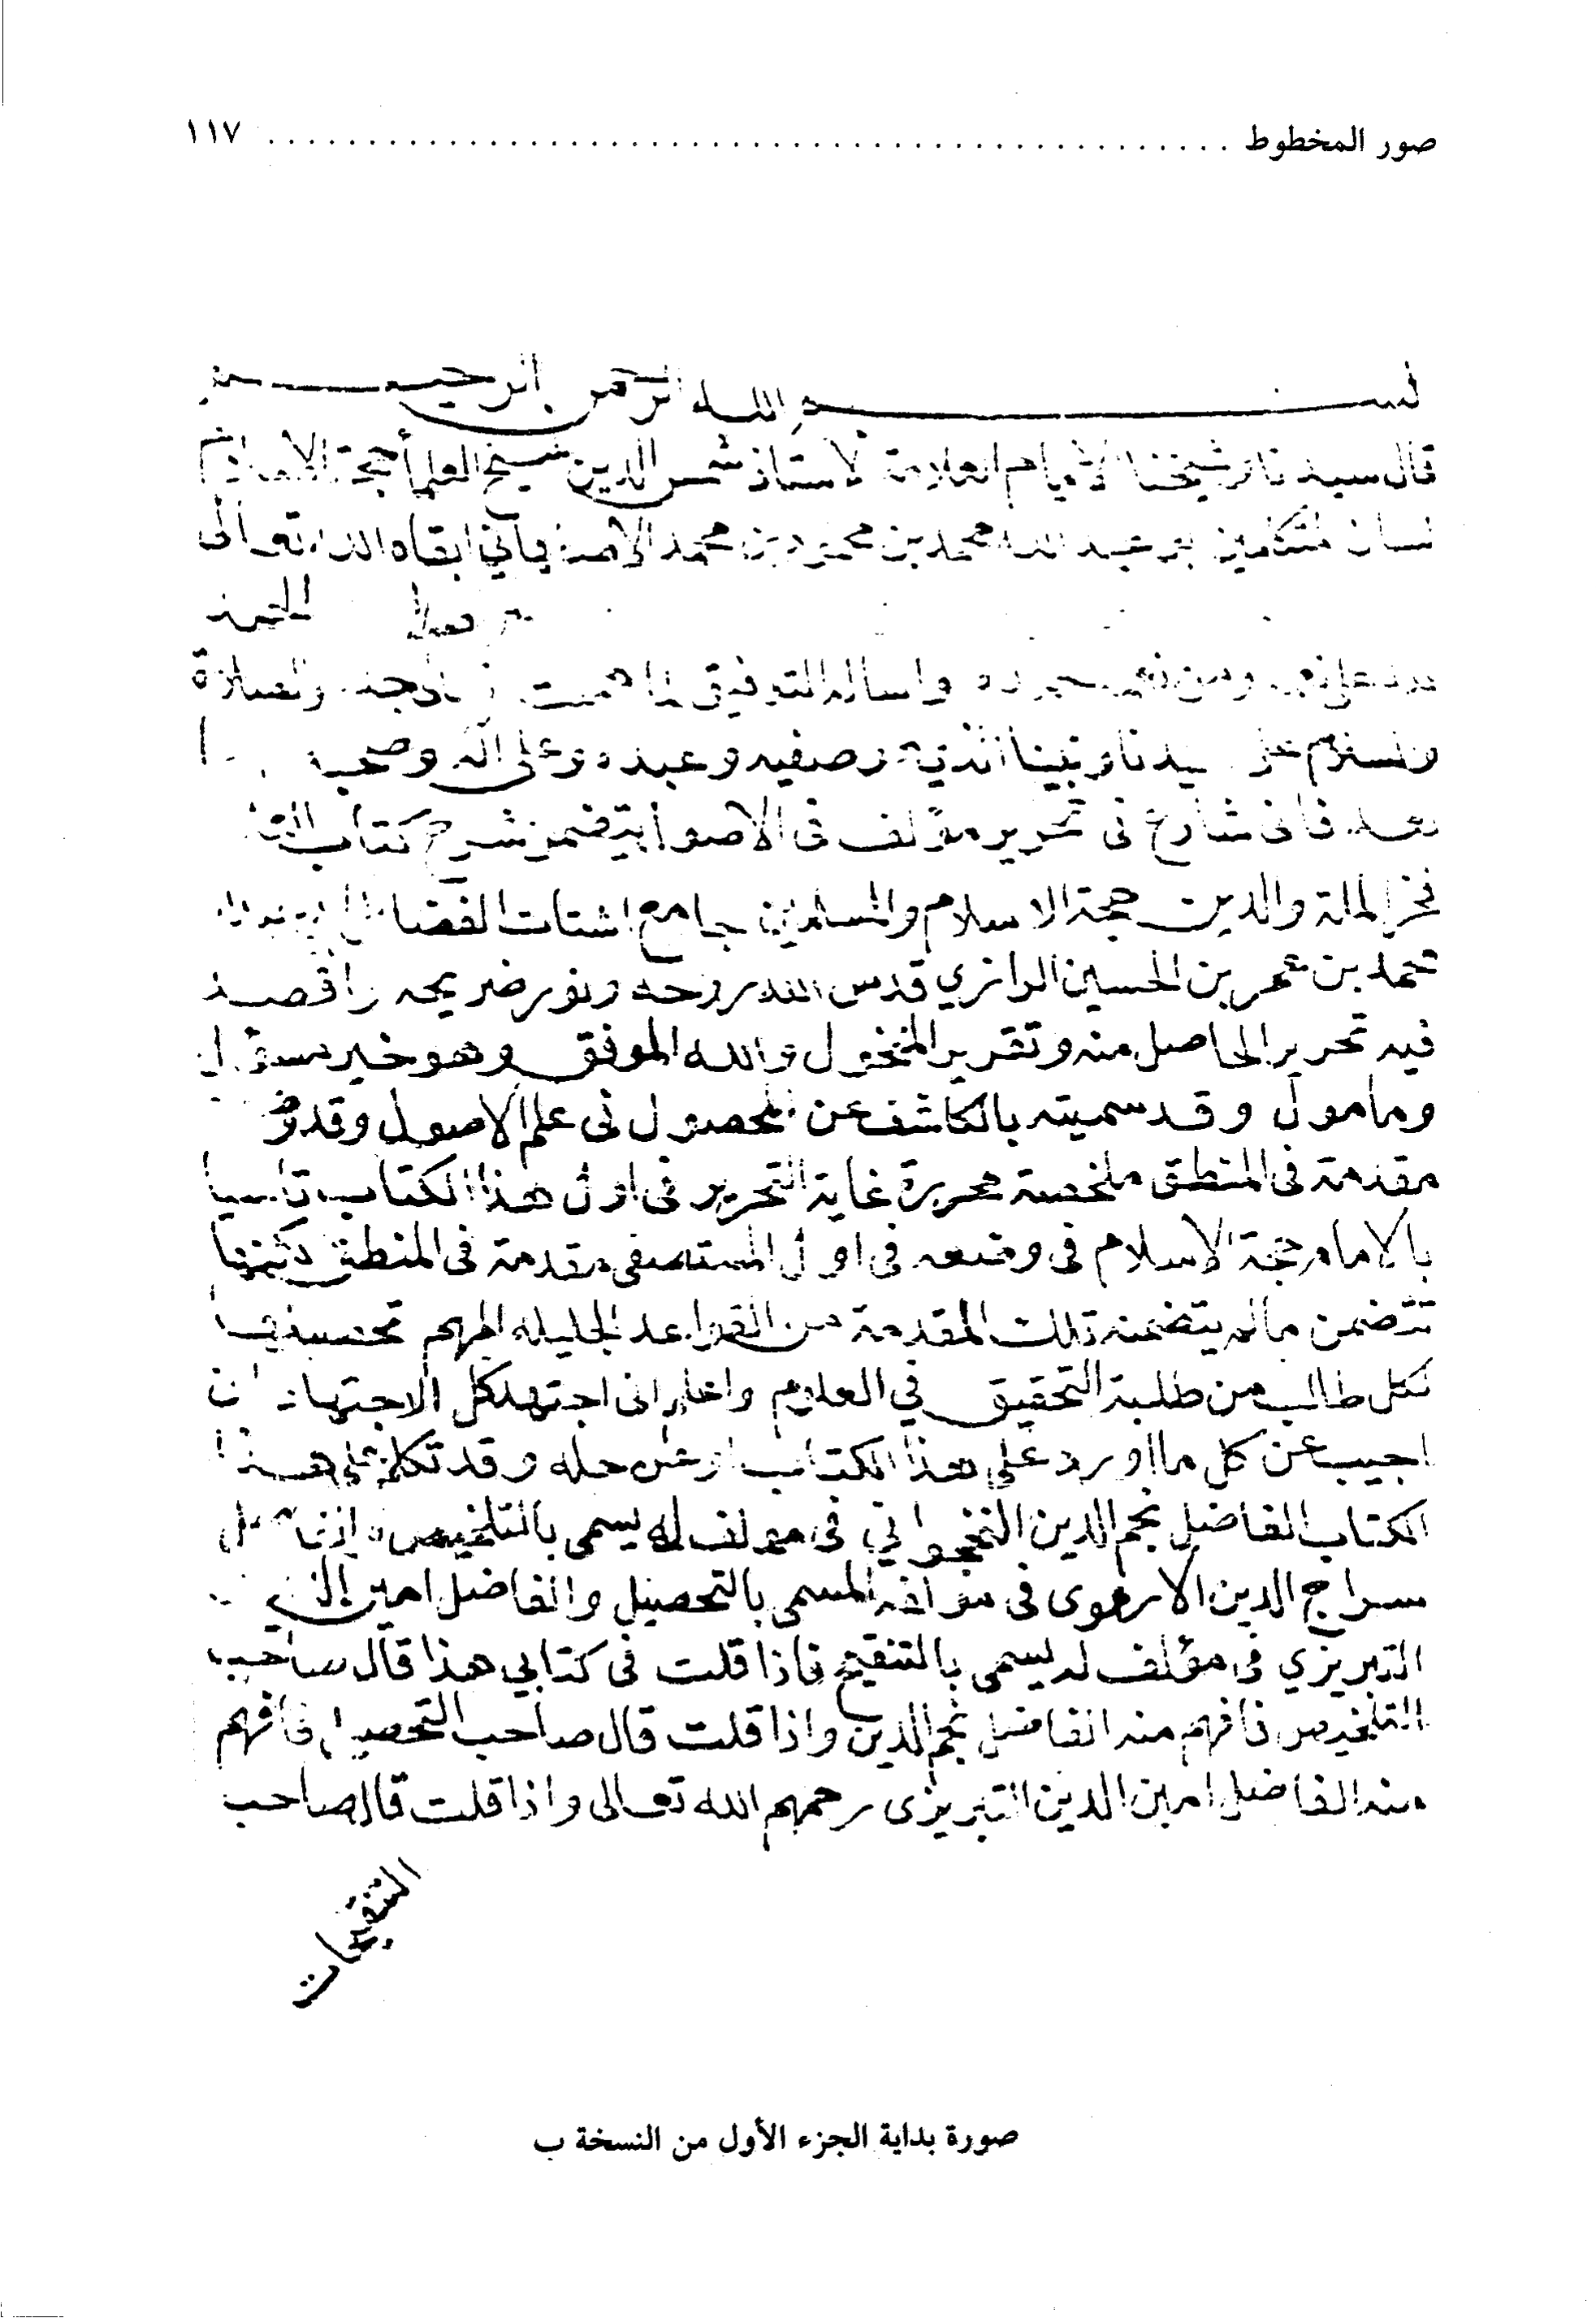 صور المخطوط ١١٧
بسم الله الرحمن الرحيم
قال سيدنا وشيخنا الامام العلامة الاستاذ شمس الدين شيخ العلما حجة
لسان المتكلمين ابو عبد الله محمد بن محمود بن محمد الاصفهاني ابقاه الله تعالى
الحمد
على ومن واساله التوفيق لما والصلاة
والسلام على سيدنا ونبينا وصفيه وعبده وعلى اله وصحبه
بعد فانى شارع فى تحرير مؤلف فى الاصول يتضمن شرح كتاب
فخر الملة والدين حجة الاسلام والمسلمين جامع اشتات الفضائل
محمد بن عمر بن الحسين الرازي قدس الله روحه ونور ضريحه واقصد
فيه تحرير الحاصل منه وتقرير المنخول والله الموفق وهو خير مسؤل
ومامول وقد سميته بالكاشف عن المحصول فى علم الاصول وقد
مقدمة فى المنطق ملخصة محررة غاية التحرير فى اول هذا الكتاب تاسيا
بالامام حجة الاسلام فى وضعه فى اول المستصفى مقدمة فى المنطق
تتضمن مالم يتضمنه تلك المقدمة من القواعد الجليله المهم تحصيلها
لكل طالب من طلبة التحقيق في العلوم واعلم انى اجتهد كل الاجتهاد ان
اجيب عن كل ما اورد على هذا الكتاب حله وقد تكلم على هذا
الكتاب الفاضل نجم الدين النخجواني فى مولف له يسمى بالتلخيص
سراج الدين الارموى فى مولفه المسمى بالتحصيل والفاضل امين الدين
التبريزي فى مؤلف له يسمى بالتنقيح فاذا قلت فى كتابي هذا قال صاحب
التلخيص فافهم منه الفاضل نجم الدين واذا قلت قال صاحب التحصيل فافهم
منه الفاضل امين الدين التبريزى رحمهم الله تعالى واذا قلت قال صاحب
التنقيحات
صورة بداية الجزء الأول من النسخة ب